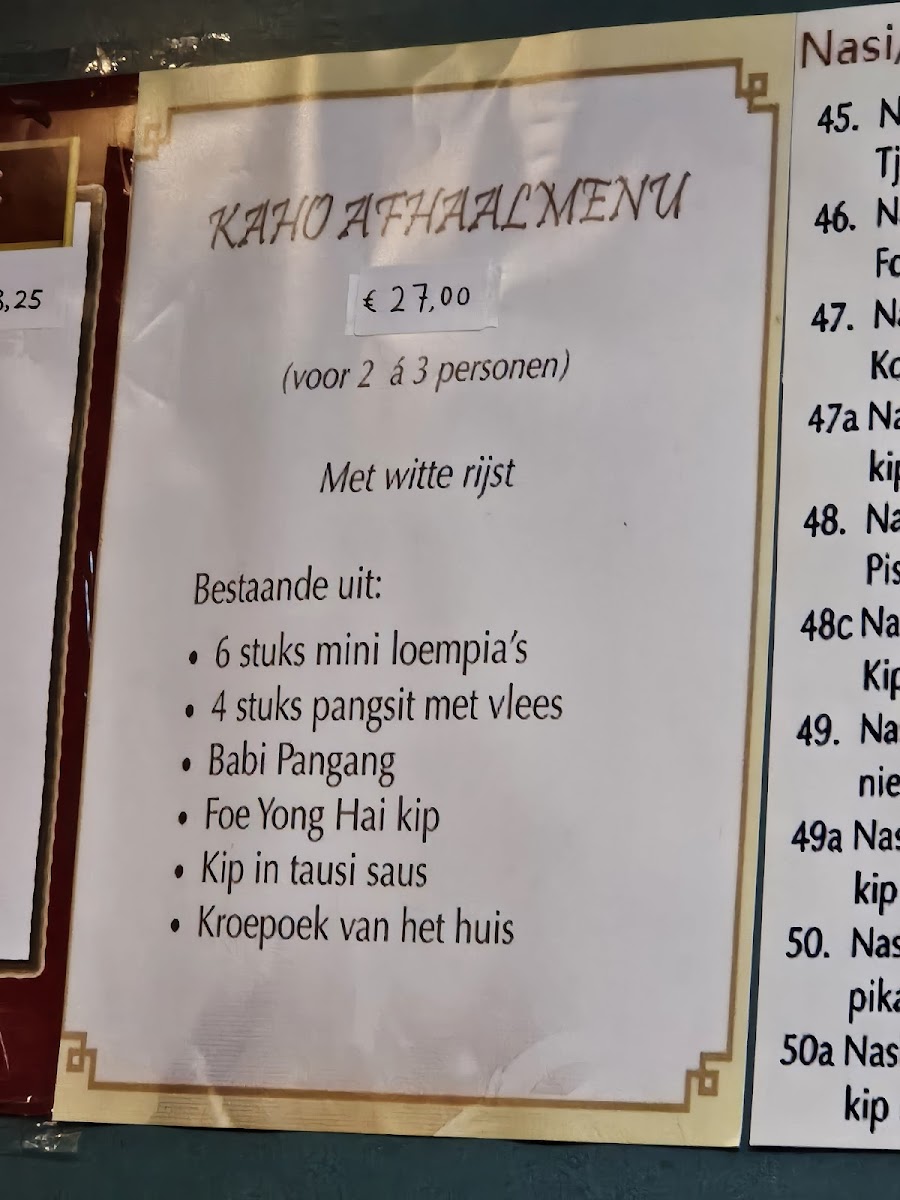 8,25
KAHO AFHAALMENU
€ 27,00
(voor 2 á 3 personen)
Met witte rijst
Bestaande uit:
• 6 stuks mini loempia's
• 4 stuks pangsit met vlees
• Babi Pangang
• Foe Yong Hai kip
• Kip in tausi saus
• Kroepoek van het huis
Nasi/
45.
46.
47.
47a
kip
48.
48c
Kip
49.
49a
kip
50.
50a
kip